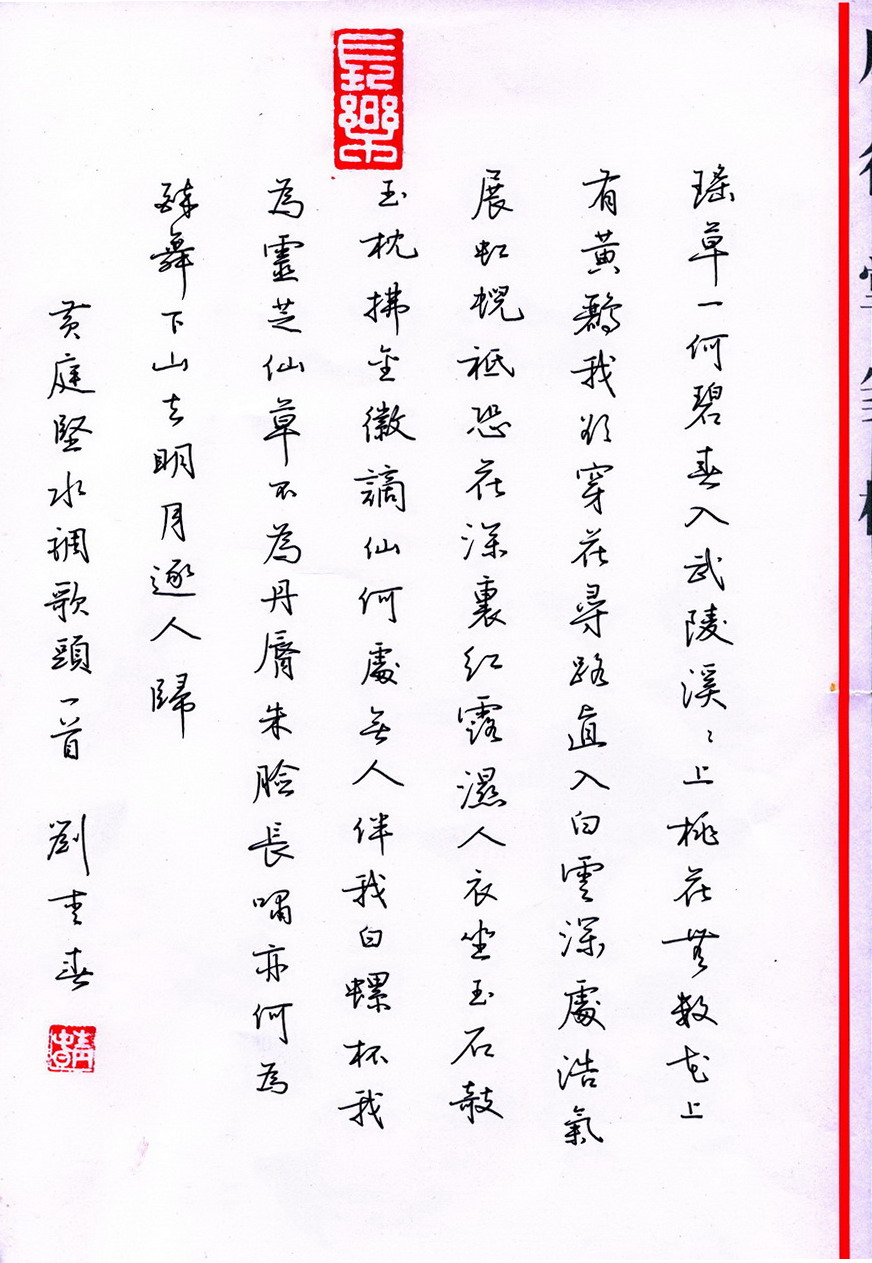 瑤草一何碧春入武陵溪〻上桃花無數花上
有黃鸝我欲穿花尋路直入白雲深處浩氣
展虹蜺祗恐花深裏紅露濕人衣坐玉石敧
玉枕拂金徽謫仙何處無人伴我白螺杯我
為靈芝仙草不為丹脣朱臉長嘯亦何為
醉舞下山去明月逐人歸
黃庭堅水調歌頭一首 劉青春
長樂
青春